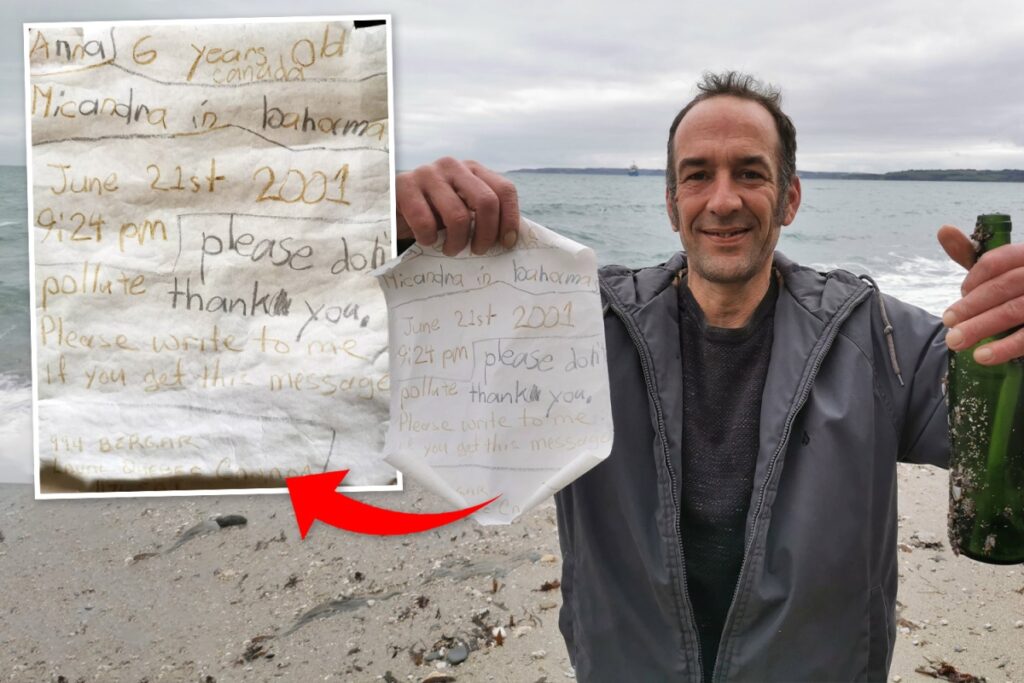 Anna 6 years Old
canada
Micandra in bahorma
June 21st 2001
9:24 pm please don'
pollute thank you.
Please write to me
if you get this message
994 BERGAR
Micandra in bahorma
June 21st 2001
9:24 pm please don'
pollute thank you.
Please write to me
if you get this message